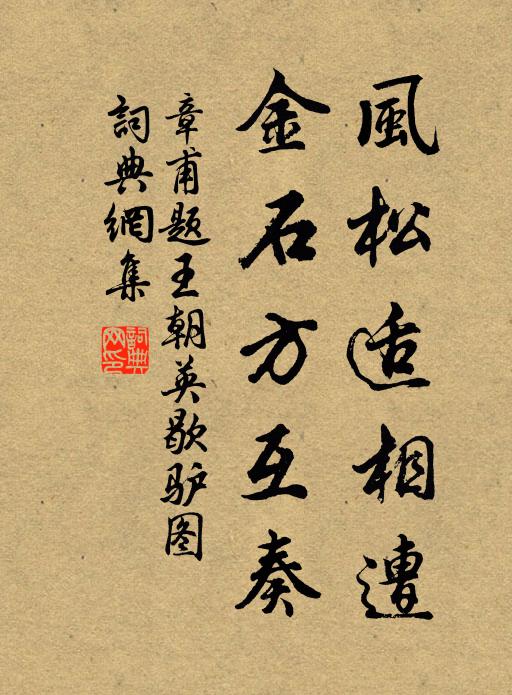 風松适相遭
金石方互奏
章甫题王朝英歇驴图
詞典網集
詞典网印